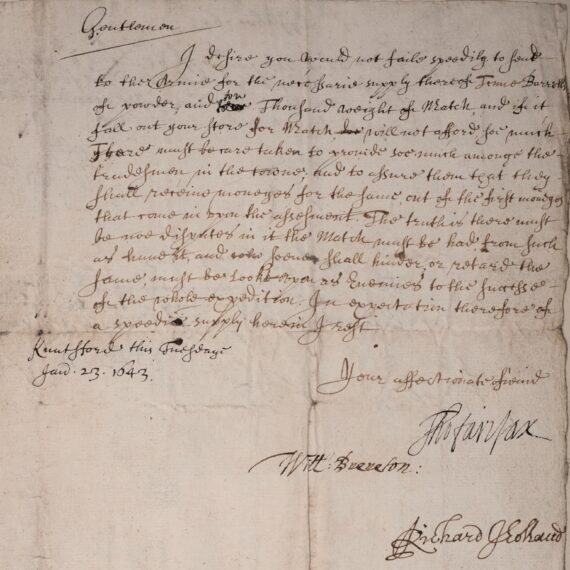 Gentlemen
I desire you would not faile speedily to send
to the Armie for the necessarie supply thereof Tenne Barrells
of powder, and Thousand weight of Match, and if it
fall out your store for Match will not afford soe much
There must be care taken to provide soe much amongst the
tradesmen in the towne, and to assure them that they
shall receive moneyes for the same, out of the first moneyes
that come in upon the assessment. The truth is there must
be noe disputes in it the Match must be had from such
as haue it, and who soever shall hinder or retard the
same, must be Lookt upon as Enemies to the successe
of the whole expedition. In expectation therefore of
a speedie supply herein I rest
Knuthford this Tuesdaye
Jan. 23. 1643.
Your affectionate freind
Tho Fairfax
Will: Brereton:
Richard Holland